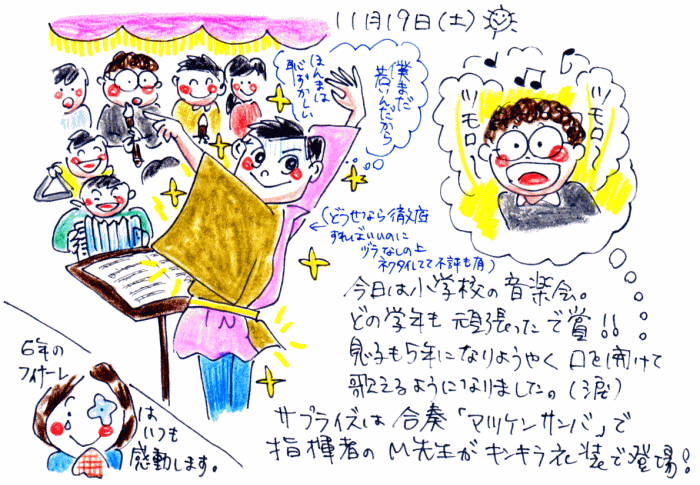 11月19日(土)
ほんまは
恥ずかしい
僕まだ
若いんだから
ツモロ〜
ツモロ〜
(どうせなら徹底
すればいいのに
ヅラなしの上
ネクタイしてて不評も有)
今日は小学校の音楽会。
どの学年も頑張ったで賞!!
息子も5年になりようやく口を開けて
歌えるようになりました。(涙)
サプライズは合奏「マツケンサンバ」で
指揮者のM先生がキンキラ衣装で登場!
6年の
フィナーレ
は
いつも
感動します。